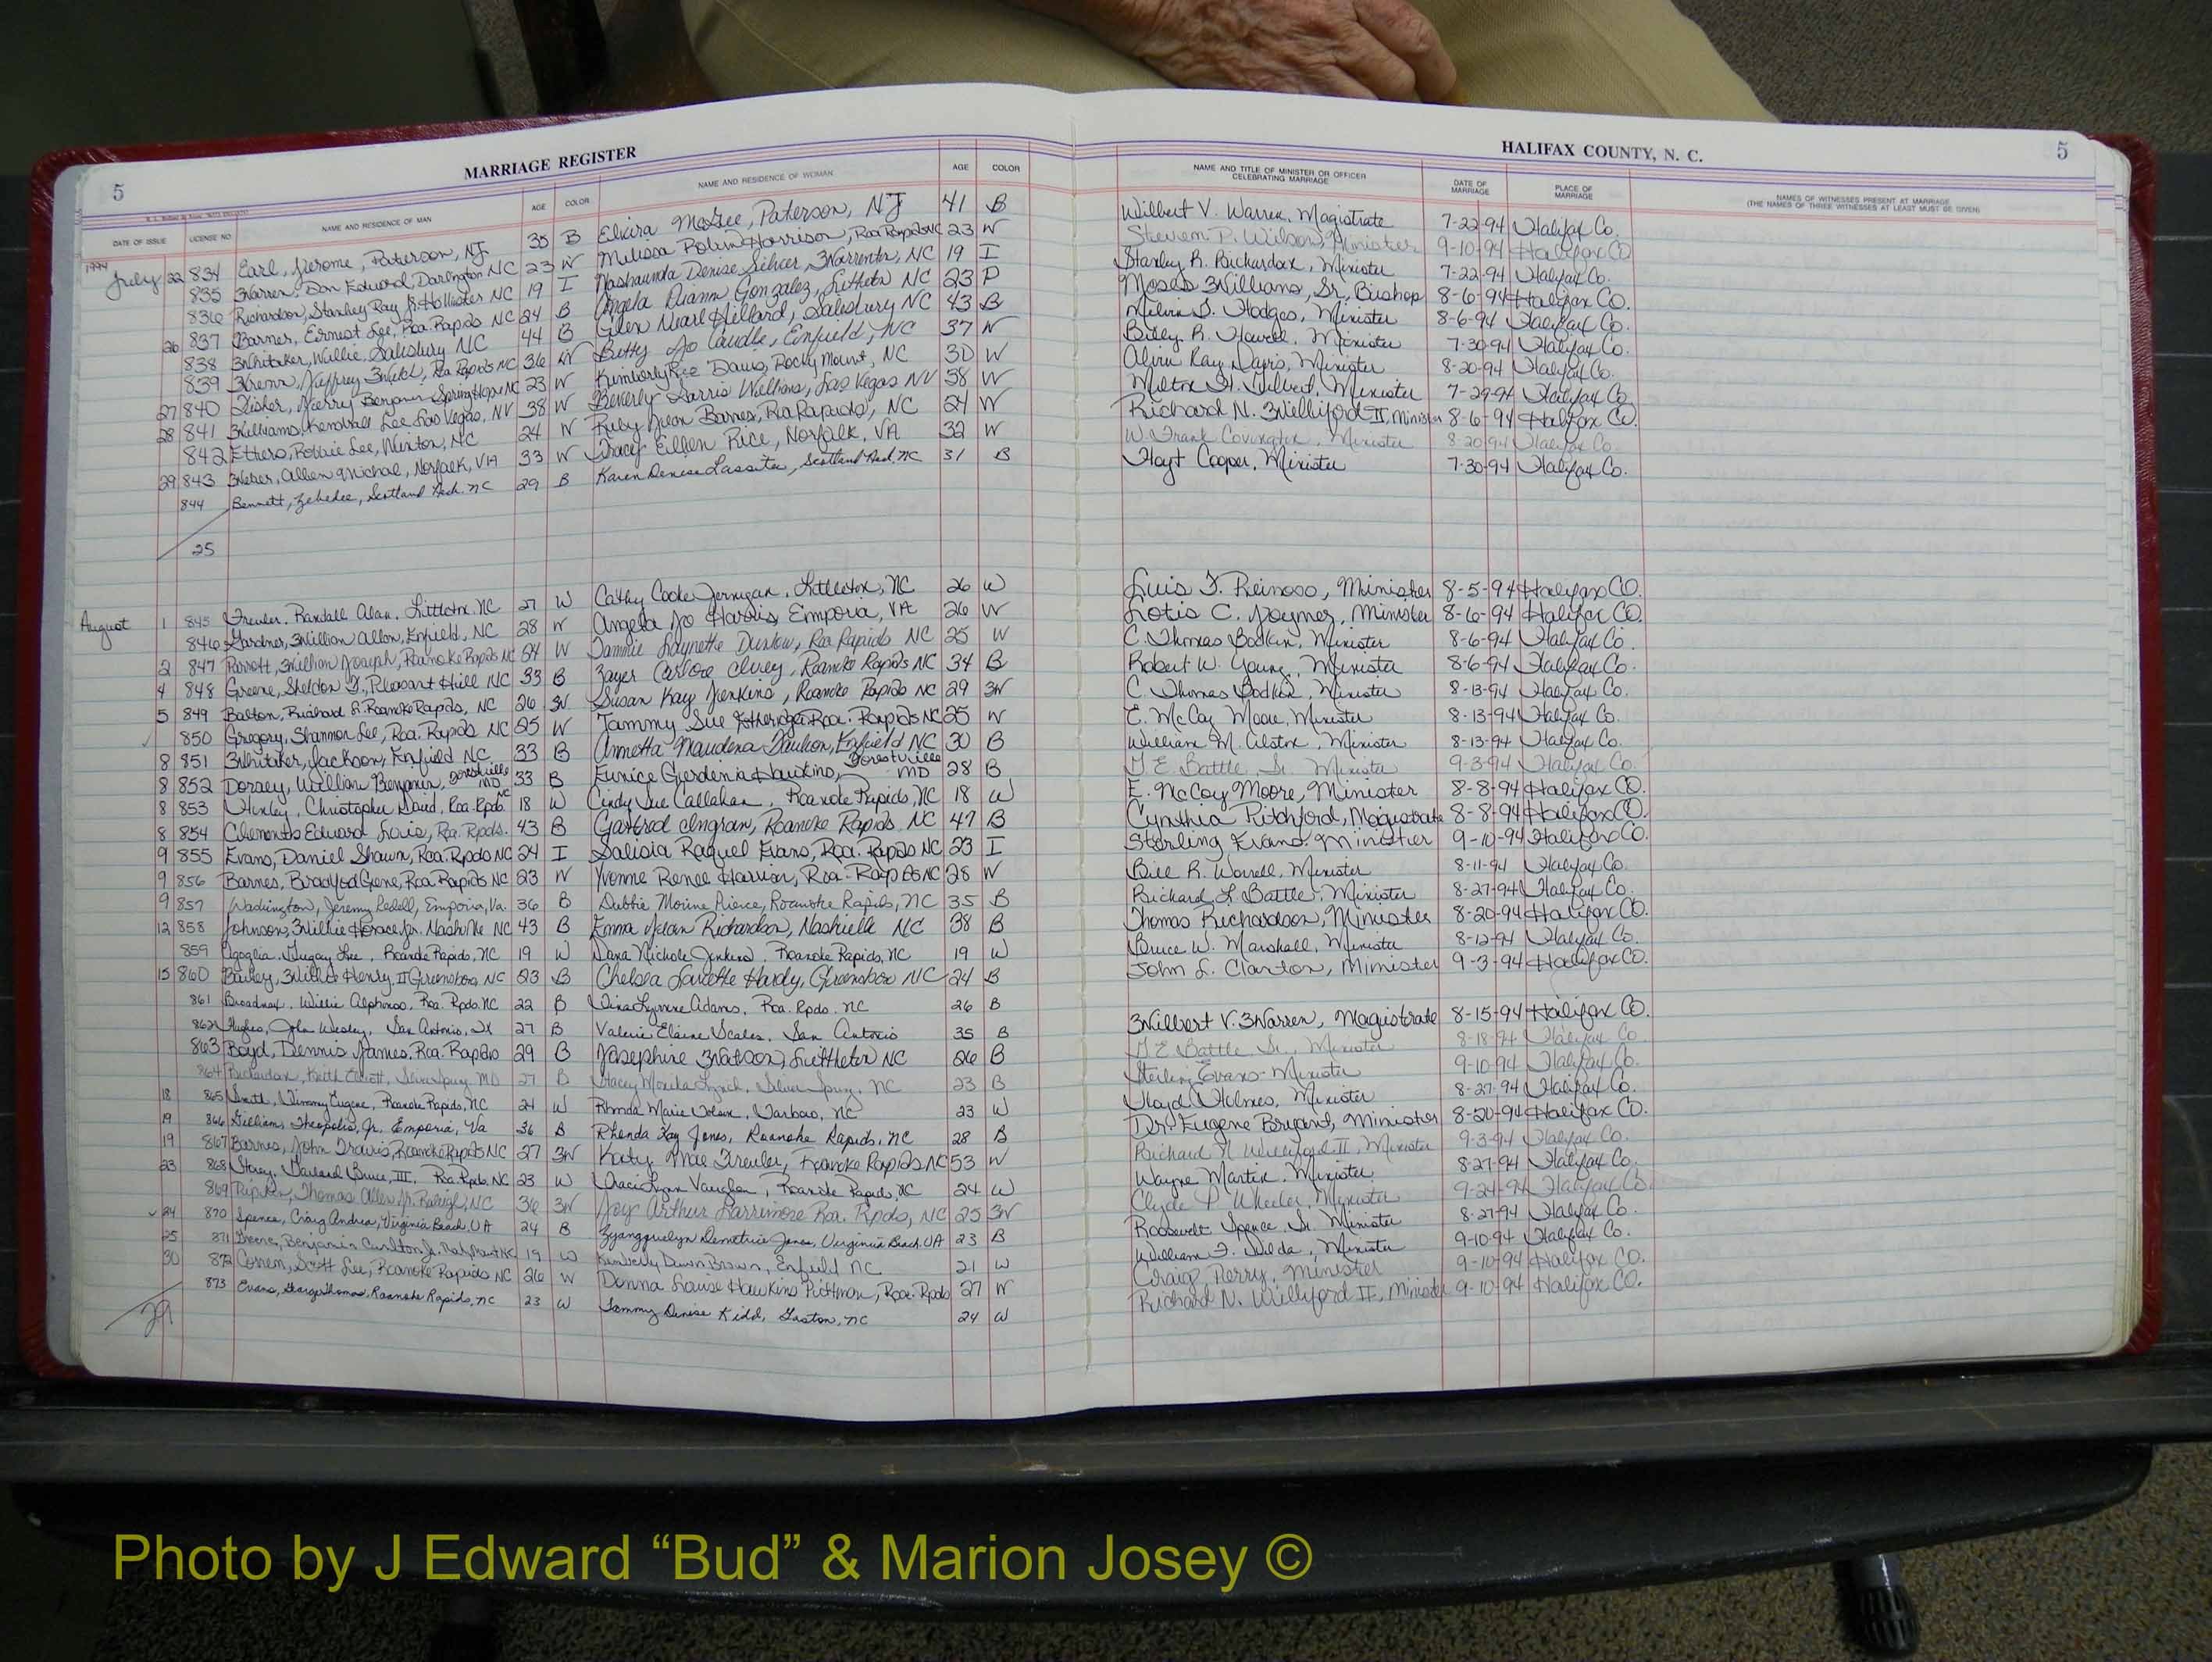 MARRIAGE REGISTER
HALIFAX COUNTY, N. C.
5
5
DATE OF ISSUE LICENSE NO NAME AND RESIDENCE OF MAN AGE COLOR NAME AND RESIDENCE OF WOMAN AGE COLOR NAME AND TITLE OF MINISTER OR OFFICER CELEBRATING MARRIAGE DATE OF MARRIAGE PLACE OF MARRIAGE NAMES OF WITNESSES PRESENT AT MARRIAGE (THE NAMES OF THREE WITNESSES AT LEAST MUST BE GIVEN)
1994
July 22 834 Earl, Jerome, Paterson, NJ 35 B Elvira McGee, Paterson, NJ 41 B Wilbert V. Warren, Magistrate 7-22-94 Halifax Co.
835 Warren, Don Edward, Darlington NC 23 W Melissa Robin Harrison, Roa Rapids NC 23 W Steven P. Wilson, Minister 9-10-94 Halifax CO
836 Richardson, Stanley Ray Jr. Hollister NC 19 I Nashaunda Denise Silver, Warrenton, NC 19 I Stanley R. Richardson, Minister 7-22-94 Halifax Co.
26 837 Barner, Ernest Lee, Roa. Rapids NC 24 B Angela Diann Gonzalez, Littleton NC 23 P Moses Williams, Sr., Bishop 8-6-94 Halifax CO.
838 Whitaker, Willie, Salisbury NC 44 B Glen Nearl Hillard, Salisbury NC 43 B Melvin D. Hodges, Minister 8-6-94 Halifax Co.
839 Wrenn, Jeffrey Webb, Roa Rapids NC 36 W Betty Jo Caudle, Enfield, NC 37 W Billy R. Howell, Minister 7-30-94 Halifax Co.
27 840 Fisher, Jerry Benjamin Spring Hope NC 23 W Kimberly Rae Davis, Rocky Mount, NC 30 W Alvin Ray Davis, Minister 8-20-94 Halifax Co.
28 841 Williams, Kendall Lee Las Vegas, NV 38 W Beverly Harris Williams, Las Vegas NV 38 W Milton H. Gilbert, Minister 7-29-94 Halifax Co.
842 Etters, Robbie Lee, Winton, NC 24 W Ruby Jean Barnes, Roa Rapids, NC 24 W Richard N. Williford II, Minister 8-6-94 Halifax Co.
29 843 Weber, Allen Michael, Norfolk, VA 33 W Tracy Ellen Rice, Norfolk, VA 32 W W. Frank Covington, Minister 8-20-94 Halifax Co
844 Bennett, Zebedee, Scotland Neck, NC 29 B Karen Denise Lassiter, Scotland Neck, NC 31 B Hoyt Cooper, Minister 7-30-94 Halifax Co.
25
August 1 845 Freuler, Randall Alan, Littleton, NC 27 W Cathy Cooke Jernigan, Littleton, NC 26 W Luis F. Reinoso, Minister 8-5-94 Halifax CO.
846 Gardner, William Allen, Enfield, NC 28 W Angela Jo Harris, Emporia, VA 26 W Lotis C. Joyner, Minister 8-6-94 Halifax CO.
2 847 Parrott, William Joseph, Roanoke Rapids NC 24 W Tammie Laynette Dunlow, Roa Rapids NC 25 W C. Thomas Bodkin, Minister 8-6-94 Halifax Co
4 848 Greene, Sheldon T., Pleasant Hill NC 33 B Ivey, Roanoke Rapids NC 34 B Robert W. Young, Minister 8-6-94 Halifax Co.
5 849 Balton, Richard L. Roanoke Rapids, NC 26 W Susan Kay Jenkins, Roanoke Rapids NC 29 W C. Thomas Bodkin, Minister 8-13-94 Halifax Co.
850 Gregory, Shannon Lee, Roa. Rapids NC 25 W Tammy Sue Etheridge Roa. Rapids NC 25 W E. McCoy Moore, Minister 8-13-94 Halifax Co.
8 851 Whitaker, Jackson, Enfield NC 33 B Annetta Naudena Faulkon, Enfield NC 30 B William M. Alston, Minister 8-13-94 Halifax Co.
8 852 Dorsey, William Benjamin, Forestville MD 33 B Eunice Gardenia Hawkins, Forestville MD 28 B J. E. Battle, Sr. Minister 9-3-94 Halifax Co.
8 853 Huxley, Christopher David, Roa. Rpds. NC 18 W Cindy Sue Callahan, Roanoke Rapids, NC 18 W E. McCoy Moore, Minister 8-8-94 Halifax CO.
8 854 Clements Edward Louis, Ro. Rpds. 43 B Ingram, Roanoke Rapids NC 47 B Cynthia Pitchford, Magistrate 8-8-94 Halifax CO.
9 855 Evans, Daniel Shawn, Roa. Rpds NC 24 I Salisia Raquel Evans, Roa. Rapids NC 23 I Sterling Evans-Minister 9-10-94 Halifax Co.
9 856 Barnes, Bradford Gene, Roa Rapids NC 23 W Yvonne Renee Harrison, Roa. Rapids NC 28 W Bill R. Worrell, Minister 8-11-94 Halifax Co.
9 857 Wadington, Jeremy Ledell, Emporia, Va. 36 B Debbie Moine Pierce, Roanoke Rapids, NC 35 B Richard L. Battle, Minister 8-27-94 Halifax Co.
12 858 Johnson, Willie Horace Jr. Nashville NC 43 B Emma Jean Richardson, Nashville NC 38 B Thomas Richardson, Minister 8-20-94 Halifax CO.
859 Lee, Roanoke Rapids, NC 19 W Dana Nichole Jenkins, Roanoke Rapids, NC 19 W Bruce W. Marshall, Minister 8-12-94 Halifax Co.
15 860 Bailey, Willie Henry, II Greensboro, NC 23 B Chelsea Lanette Hardy, Greensboro NC 24 B John L. Clanton, Minister 9-3-94 Halifax CO.
861 Broadnax, Willie Alphonso, Roa. Rpds. NC 22 B Tina Lynnre Adams, Roa. Rpds. NC 26 B
862 Hughes, John Wesley, San Antonio, TX 27 B Valerie Elaine Scales, San Antonio 35 B Wilbert V. Warren, Magistrate 8-15-94 Halifax CO.
863 Boyd, Dennis James, Roa. Rapids 29 B Josephine Watson, Littleton NC 26 B J. E. Battle Sr., Minister 8-18-94 Halifax Co
864 Richardson, Keith Elliott, Silver Spring, MD 27 B Stacey Monika Lynch, Silver Spring, NC 23 B Sterling Evans-Minister 9-10-94 Halifax Co.
18 865 Smith, Jimmy Eugene, Roanoke Rapids, NC 24 W Rhonda Marie, Tarboro, NC 23 W Lloyd Holmes, Minister 8-27-94 Halifax Co.
19 866 Gilliam, Theopolis, Jr. Emporia, Va 36 B Rhonda Kay Jones, Roanoke Rapids, NC 28 B Dr. Eugene Bryant, Minister 8-20-94 Halifax CO.
19 867 Barnes, John Travis, Roanoke Rapids NC 27 W Katy Mae Freuler, Roanoke Rapids NC 53 W Richard N. Williford II, Minister 9-3-94 Halifax Co.
23 868 Stacy, Garland Bruce, III, Roa. Rpds. NC 23 W Traci Lynn Vaughan, Roanoke Rapids, NC 24 W Wayne Martin, Minister 8-27-94 Halifax Co.
869 Thomas Allen Jr. Raleigh, NC 36 W Joy Arthur Larrimore Roa. Rpds, NC 25 W Clyde P. Wheeler, Minister 9-24-94 Halifax Co
24 870 Spence, Craig Andrea, Virginia Beach, VA 24 B Zyangquelyn Demetrice Jones, Virginia Beach, VA 23 B Roosevelt Spence, Sr. Minister 8-27-94 Halifax Co.
25 871 Greene, Benjamin Carlton Jr. Rocky Mount NC 19 W Kimberly Dawn Brown, Enfield NC 21 W William F. Wilda, Minister 9-10-94 Halifax Co.
30 872 Scott Lee, Roanoke Rapids NC 26 W Donna Louise Hawkins Pittman, Roa. Rpds 27 W Craig Perry, Minister 9-10-94 Halifax CO.
873 Evans, George Thomas, Roanoke Rapids, NC 23 W Tammy Denise Kidd, Gaston, NC 24 W Richard N. Williford II, Minister 9-10-94 Halifax CO.
29
Photo by J Edward “Bud” & Marion Josey ©